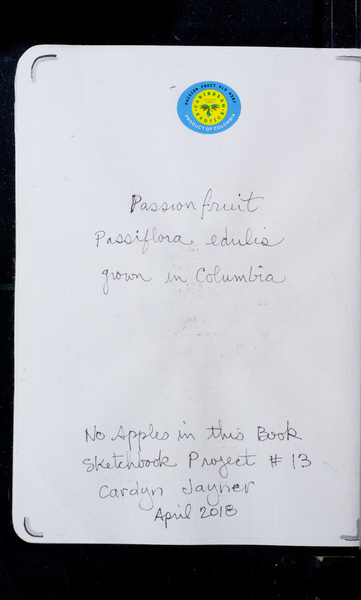 PASSION FRUIT PLU 4397
CARIBBEAN
EXOTICS
PRODUCT OF COLOMBIA
Passion fruit
Passiflora edulis
grown in Columbia
No Apples in this Book
Sketchbook Project # 13
Carolyn Jayner
April 2018